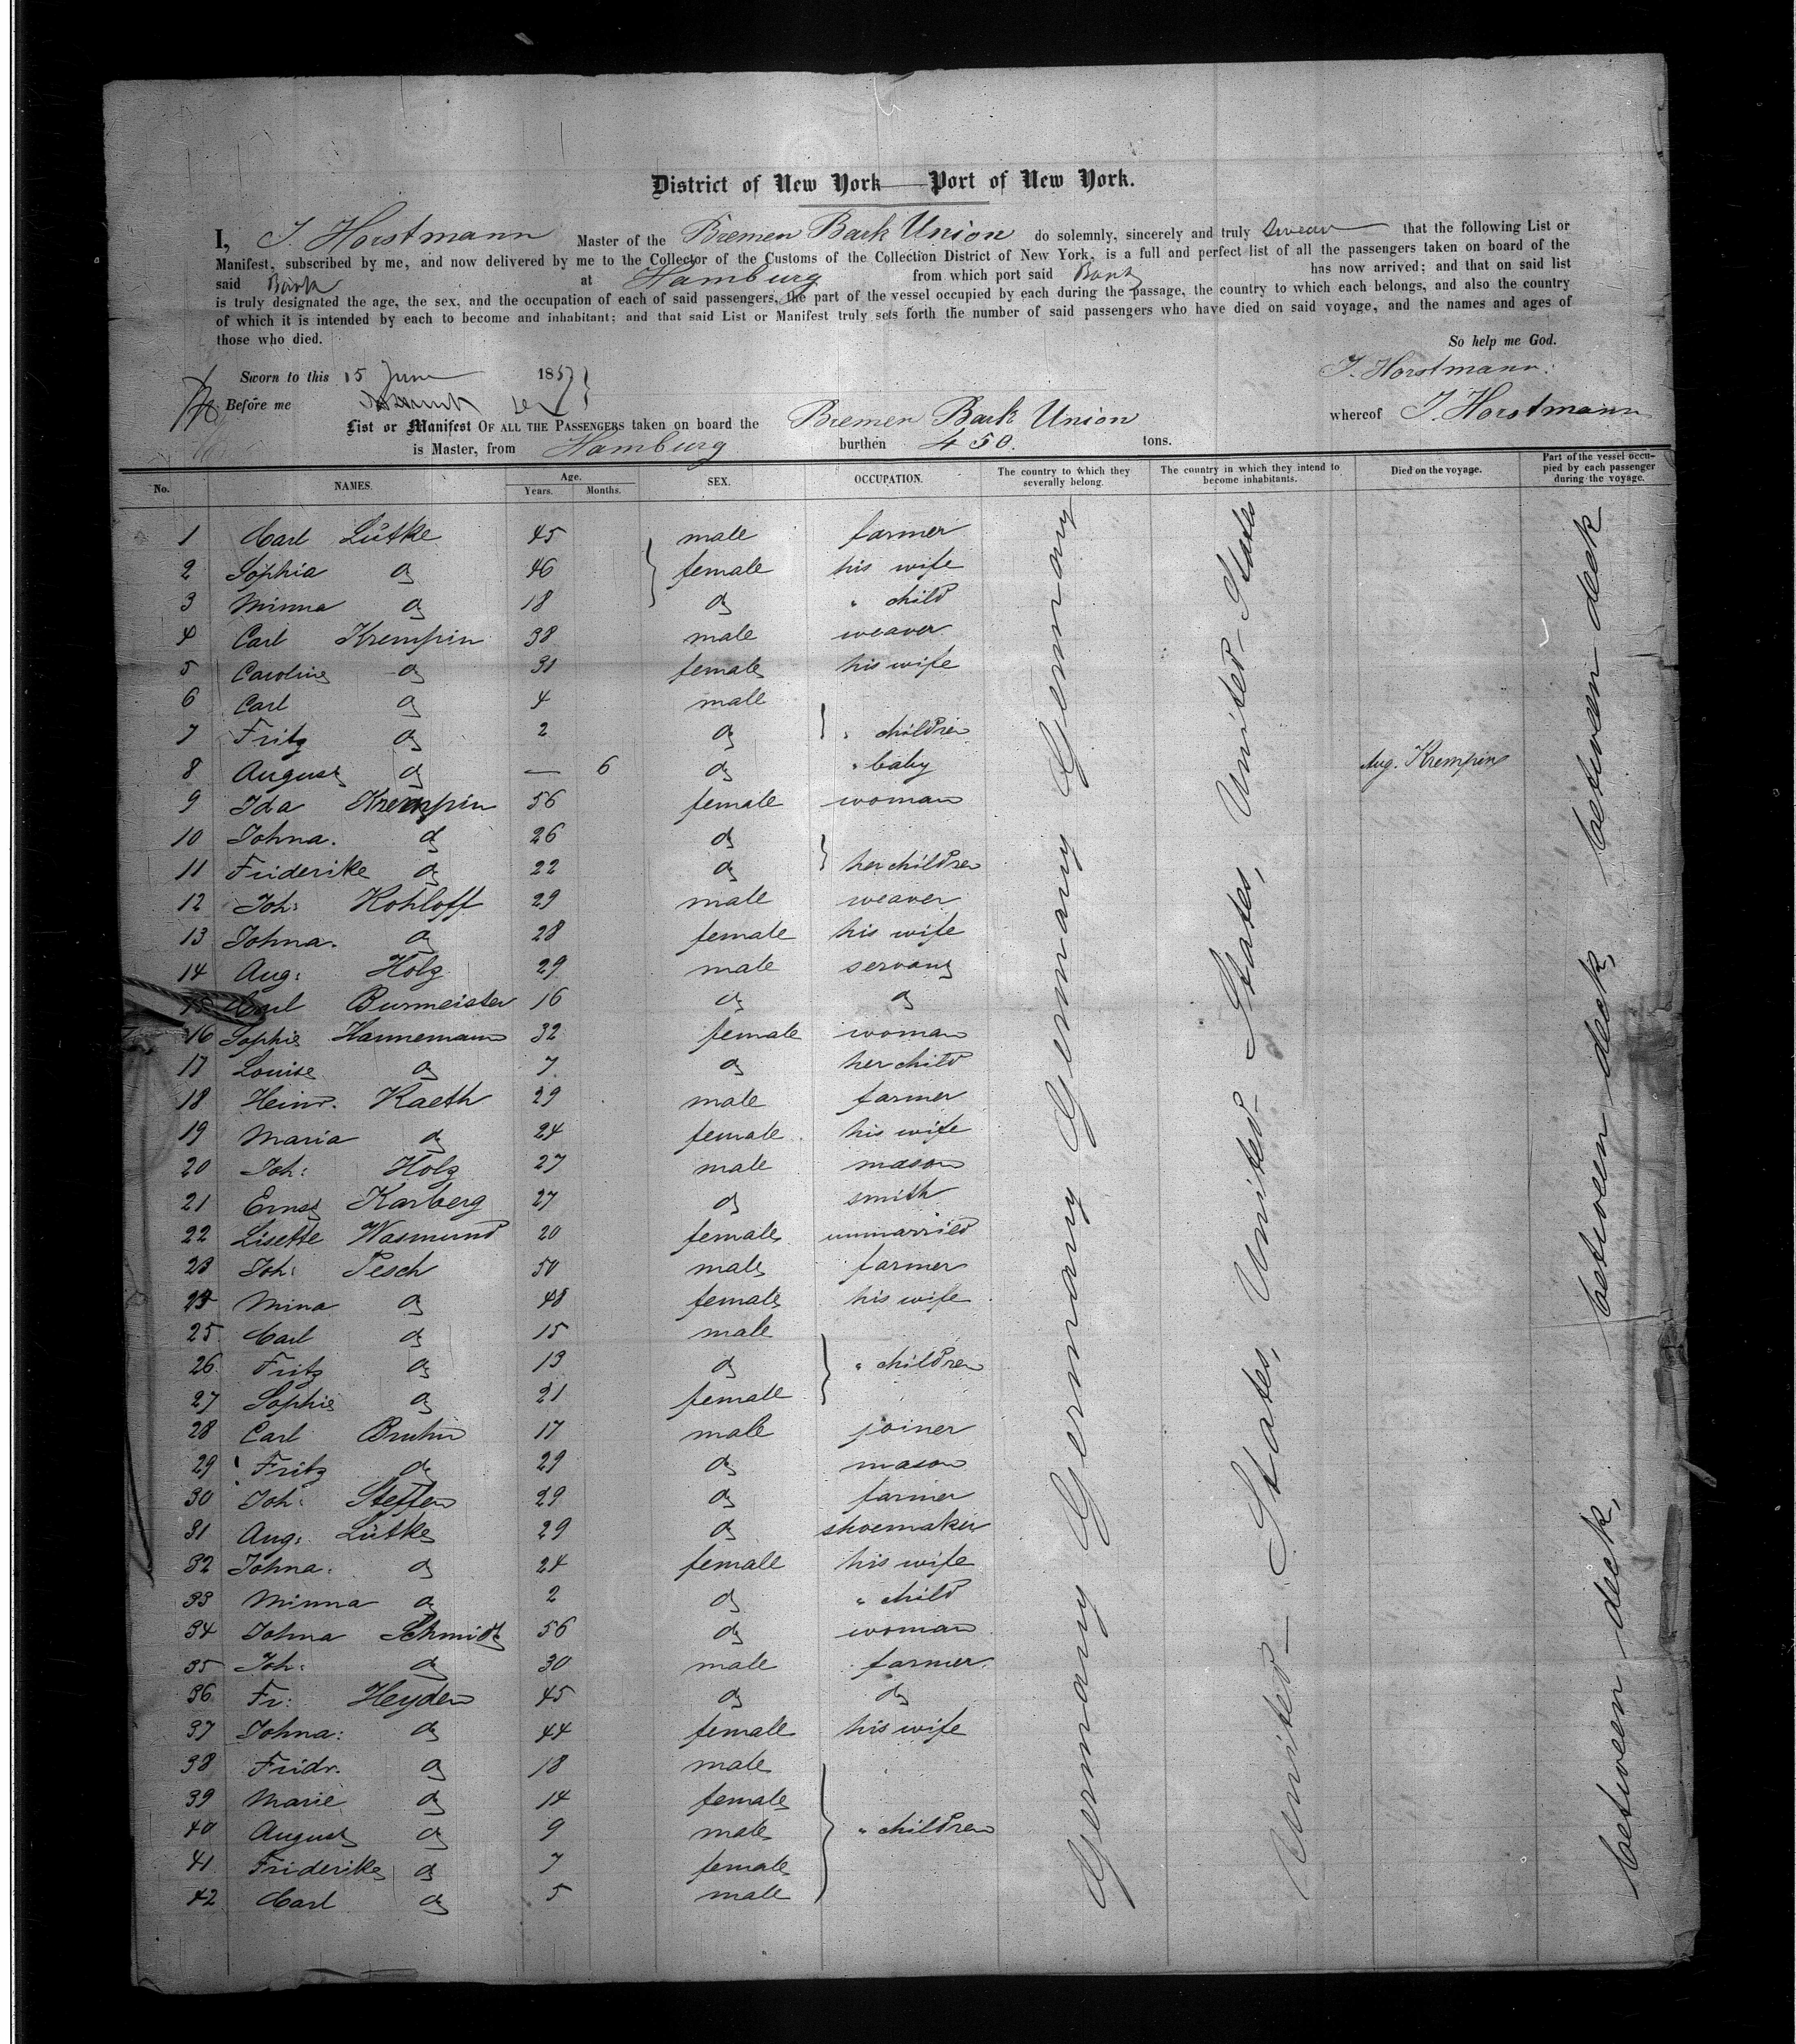 District of New York — Port of New York.
I, J. Horstmann Master of the Bremen Bark Union do solemnly, sincerely and truly swear that the following List or
Manifest, subscribed by me, and now delivered by me to the Collector of the Customs of the Collection District of New York, is a full and perfect list of all the passengers taken on board of the
said Bark at Hamburg from which port said Bark has now arrived; and that on said list
is truly designated the age, the sex, and the occupation of each of said passengers, the part of the vessel occupied by each during the passage, the country to which each belongs, and also the country
of which it is intended by each to become and inhabitant; and that said List or Manifest truly sets forth the number of said passengers who have died on said voyage, and the names and ages of
those who died. So help me God.
Sworn to this 15 June 1857 J. Horstmann.
Before me
List or Manifest OF ALL THE PASSENGERS taken on board the Bremen Bark Union whereof J. Horstmann
is Master, from Hamburg burthen 450. tons.
No. NAMES. Age. Years. Months. SEX. OCCUPATION. The country to which they severally belong. The country in which they intend to become inhabitants. Died on the voyage. Part of the vessel occupied by each passenger during the voyage.
1 Carl Lütke 45 male farmer
2 Sophia do 46 female his wife
3 Minna do 18 do " child
4 Carl Krempin 38 male weaver
5 Caroline do 31 female his wife
6 Carl do 4 male
7 Fritz do 2 do " children
8 August do — 6 do " baby Aug. Krempin
9 Ida Krempin 56 female woman
10 Johna. do 26 do
11 Friderike do 22 do her children
12 Joh: Kohloff 29 male weaver
13 Johna. do 28 female his wife
14 Aug: Holz 29 male servant
15 Carl Burmeister 16 do do
16 Sophie Hannemann 32 female woman
17 Louise do 7 do her child
18 Heinr. Kaeth 29 male farmer
19 Maria do 24 female his wife
20 Joh: Holz 27 male mason
21 Ernst Karberg 27 do smith
22 Lisette Wasmund 20 female unmarried
23 Joh: Pesch 50 male farmer
24 Mina do 48 female his wife
25 Carl do 15 male
26 Fritz do 13 do " children
27 Sophie do 21 female
28 Carl Bruhn 17 male joiner
29 Fritz do 29 do mason
30 Joh: Steffen 29 do farmer
31 Aug: Lütke 29 do shoemaker
32 Johna: do 24 female his wife
33 Minna do 2 do " child
34 Johna Schmidt 56 do woman
35 Joh: do 30 male farmer
36 Fr: Heyden 45 do do
37 Johna: do 44 female his wife
38 Fridr. do 18 male
39 Marie do 14 female
40 August do 9 male " children
41 Friderike do 7 female
42 Carl do 5 male
Germany Germany Germany Germany Germany
United States, United States, United States
between deck, between deck, between deck